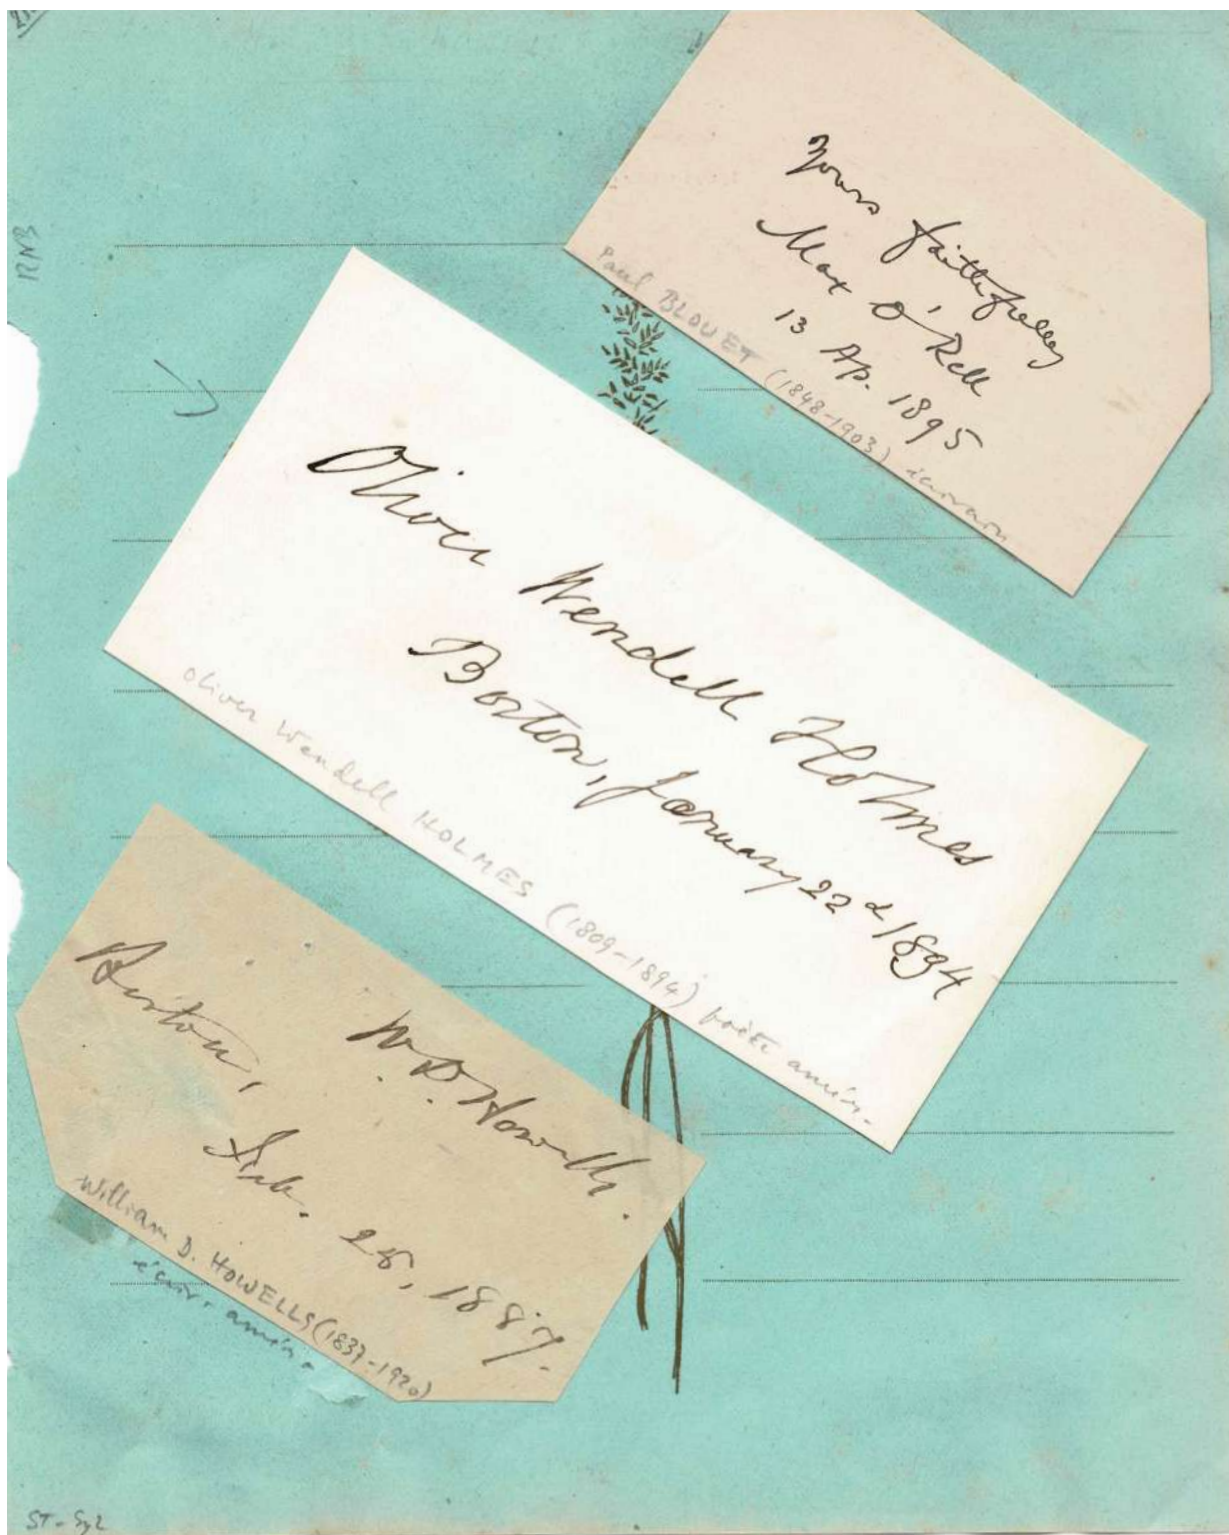 RNB
Yours faithfully
Max O'Rell
13 Ap. 1895
Paul BLOUET (1848-1903) écrivain
Oliver Wendell Holmes
Boston, January 22d 1894
Oliver Wendell HOLMES (1809-1894) poète amér.
W. D. Howells.
Boston,
Feb. 25, 1887.
William D. HOWELLS (1837-1920)
écriv. amér.